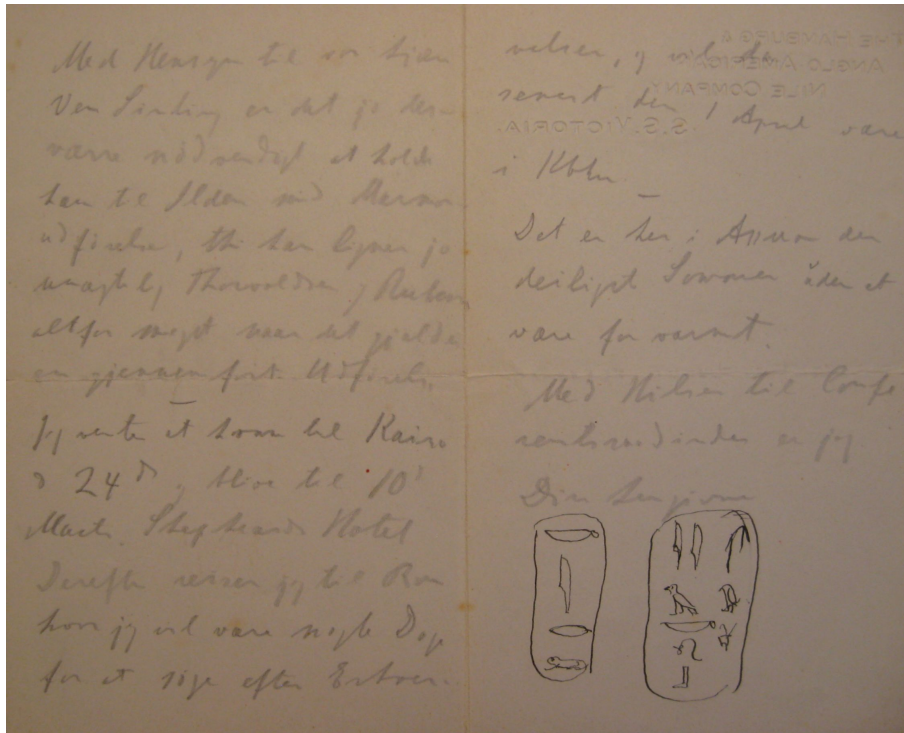 Med Hensyn til vor kjære
Ven Sinding er det jo des-
værre nödvendigt at holde
ham til Ilden med Marmor
udförelse, thi han ligner jo
unægtelig Thorvaldsen og
altfor meget naar det gjælder
en gjennemfört Udförelse.
Jeg venter at komme til Kairo
d 24de og blive til 10d
Marts. Shepheards Hotel
Derefter reiser jeg til Rom
hvor jeg vil være nogle Dage
for at sige efter Erhver-
velser, og vil da
senest den 1 April være
i Kbhn
Det er her i Assuan den
deiligste Sommer uden at
være for varmt.
Med Hilsen til Confe
rentsraadinden er jeg
Din hengivne
THE HAMBURG &
ANGLO AMERICAN
NILE COMPANY
S.S. VICTORIA.